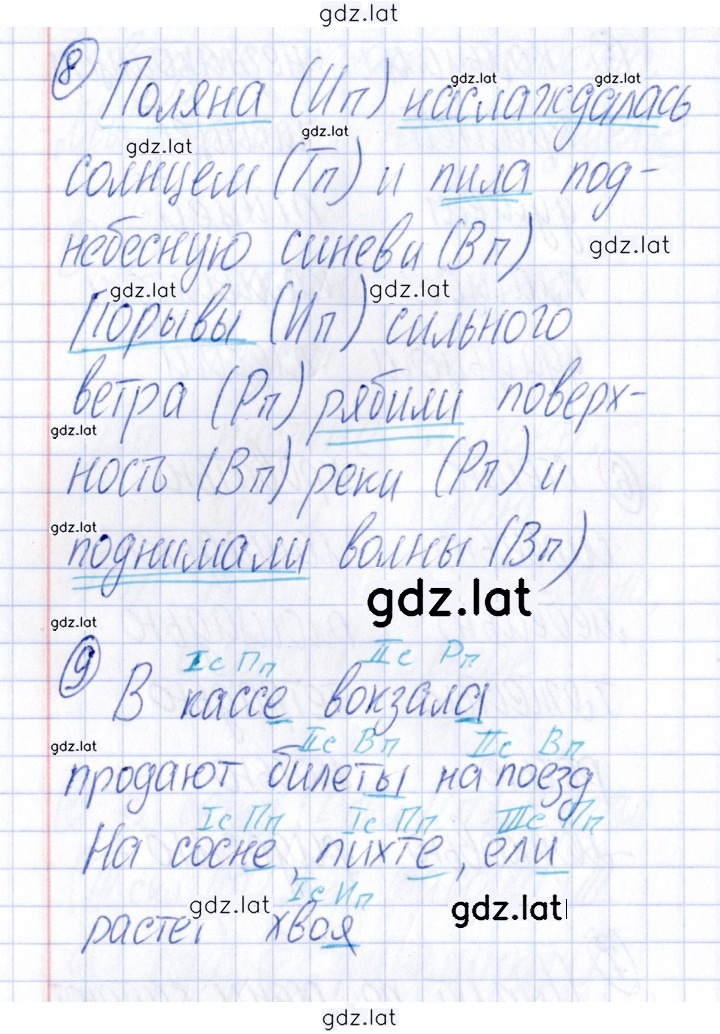 gdz.lat
8 Поляна (Ип) наслаждалась
gdz.lat gdz.lat
gdz.lat gdz.lat
солнцем (Тп) и пила под-
небесную синеви (Вп) gdz.lat
gdz.lat gdz.lat
Порывы (Ип) сильного
ветра (Рп) рябили поверх-
gdz.lat
ность (Вп) реки (Рп) и
gdz.lat
поднимали волны (Вп)
gdz.lat
gdz.lat
9 Iс Пп IIс Рп
В кассе вокзала
gdz.lat IIс Вп IIс Вп
продают билеты на поезд
Iс Пп Iс Пп IIIс Пп
На сосне, пихте, ели
Iс Ип
gdz.lat gdz.lat
растет хвоя
gdz.lat